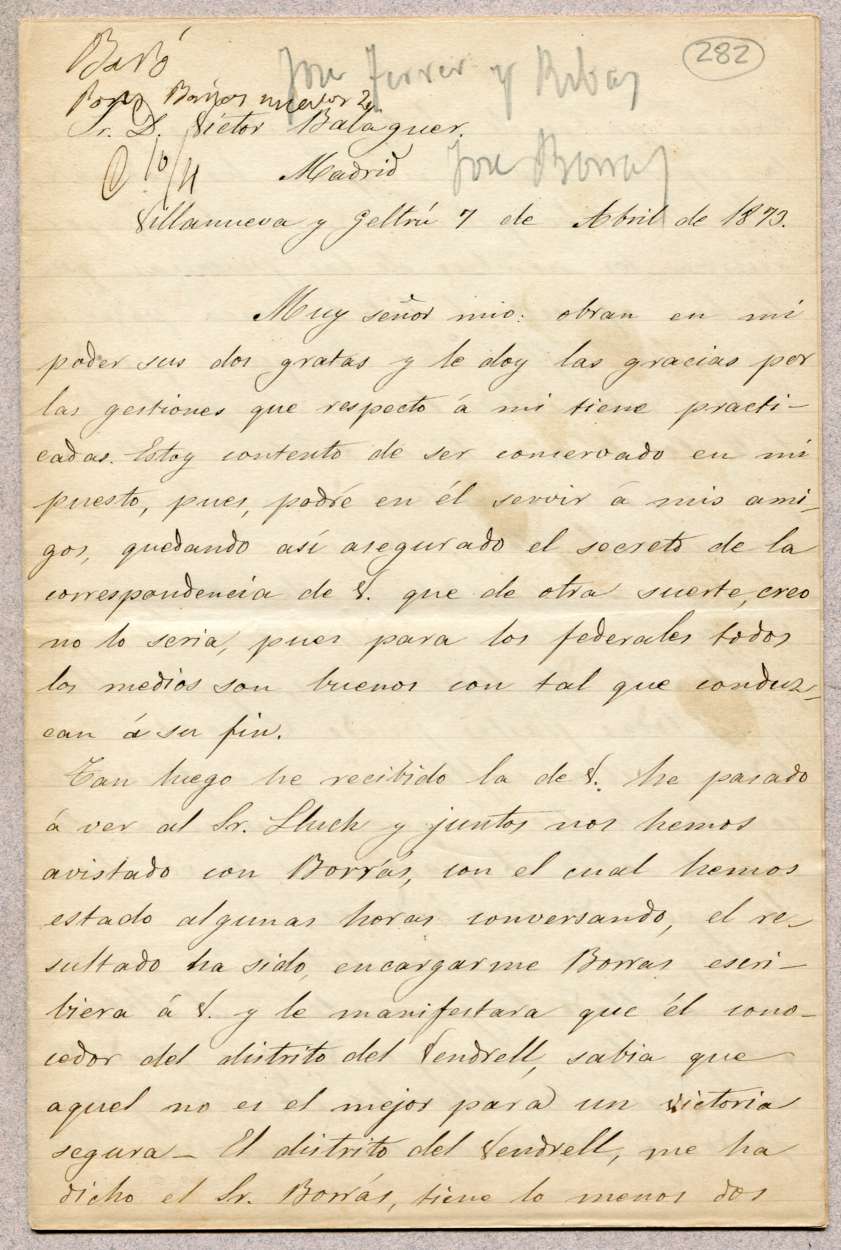 Baró
Jose Ferrer y Ribas
282
Sr. D. Victor Balaguer.
10/4
Madrid
Jose Borras
Villanueva y Geltrú 7 de Abril de 1873.
Muy señor mio: obran en mi
poder sus dos gratas y le doy las gracias por
las gestiones que respecto á mi tiene practi-
cadas. Estoy contento de ser conservado en mi
puesto, pues, podré en él servir á mis ami-
gos, quedando así asegurado el secreto de la
correspondencia de V. que de otra suerte, creo
no lo seria, pues para los federales todos
los medios son buenos con tal que conduz-
can á su fin.
Tan luego he recibido la de V. he pasado
á ver al Sr. Lluch y juntos nos hemos
avistado con Borrás, con el cual hemos
estado algunas horas conversando, el re-
sultado ha sido, encargarme Borras escri-
biera á V. y le manifestara que él cono-
cedor del distrito del Vendrell, sabia que
aquel no es el mejor para un victoria
segura- El distrito del Vendrell, me ha
dicho el Sr. Borrás, tiene lo menos dos